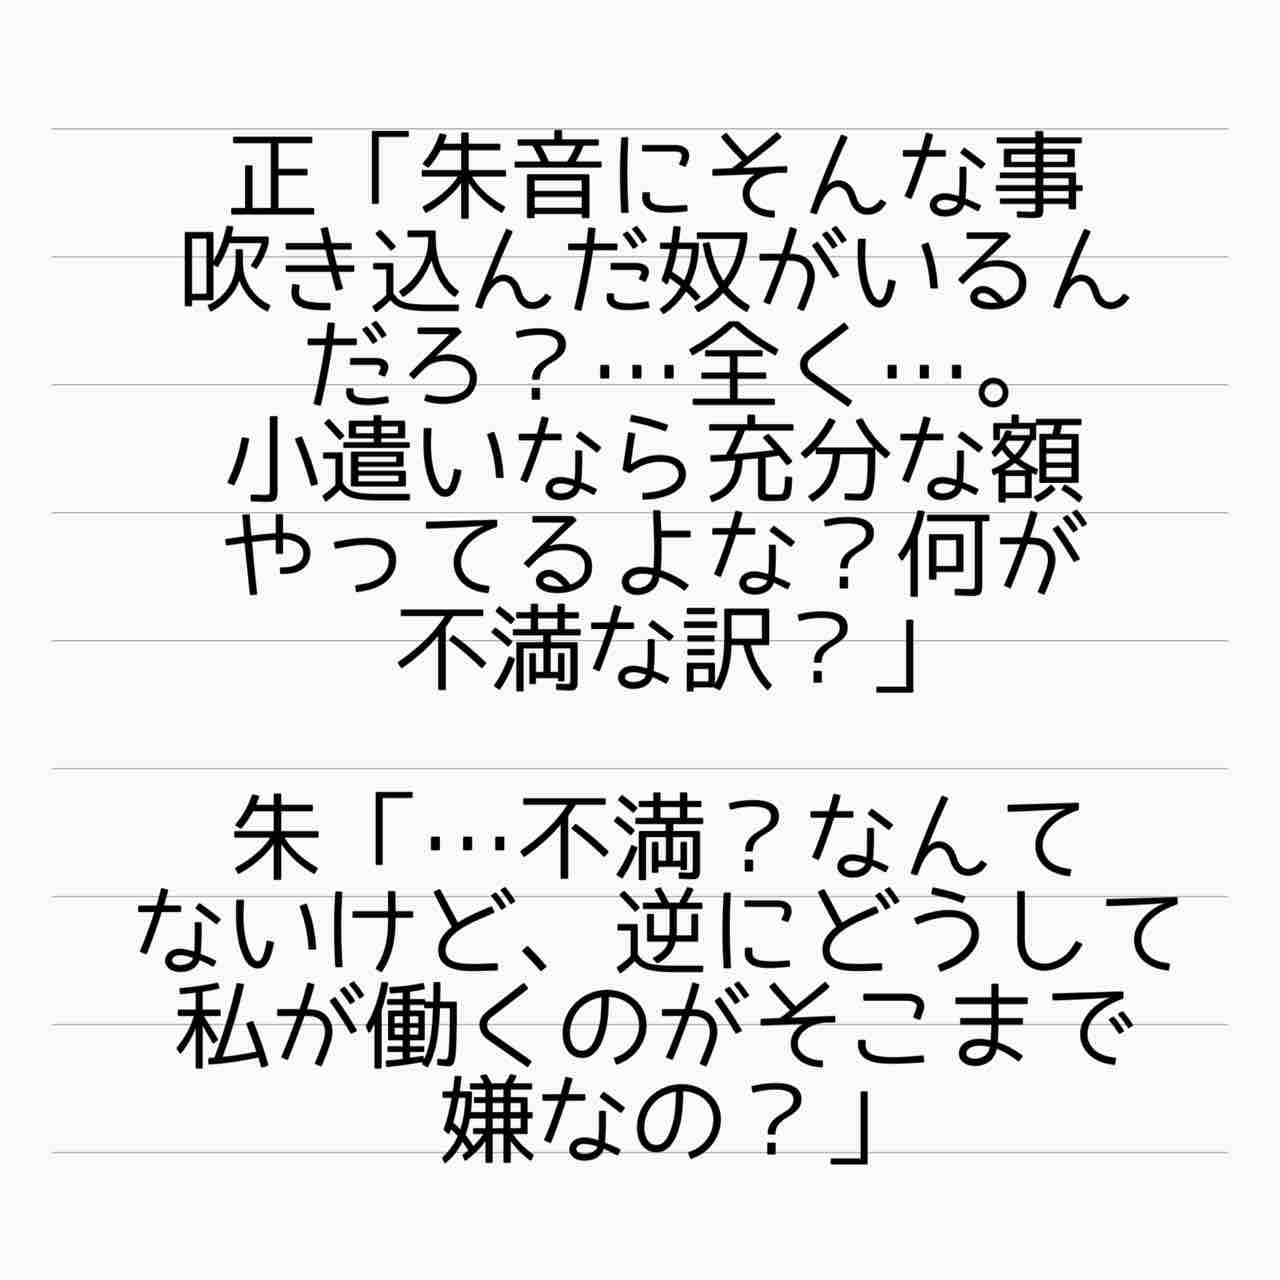 正「朱音にそんな事
吹き込んだ奴がいるん
だろ？…全く…。
小遣いなら充分な額
やってるよな？何が
不満な訳？」
朱「…不満？なんて
ないけど、逆にどうして
私が働くのがそこまで
嫌なの？」